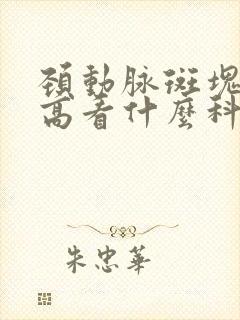 頚動脉斑塊
高看什麼科
朱忠華